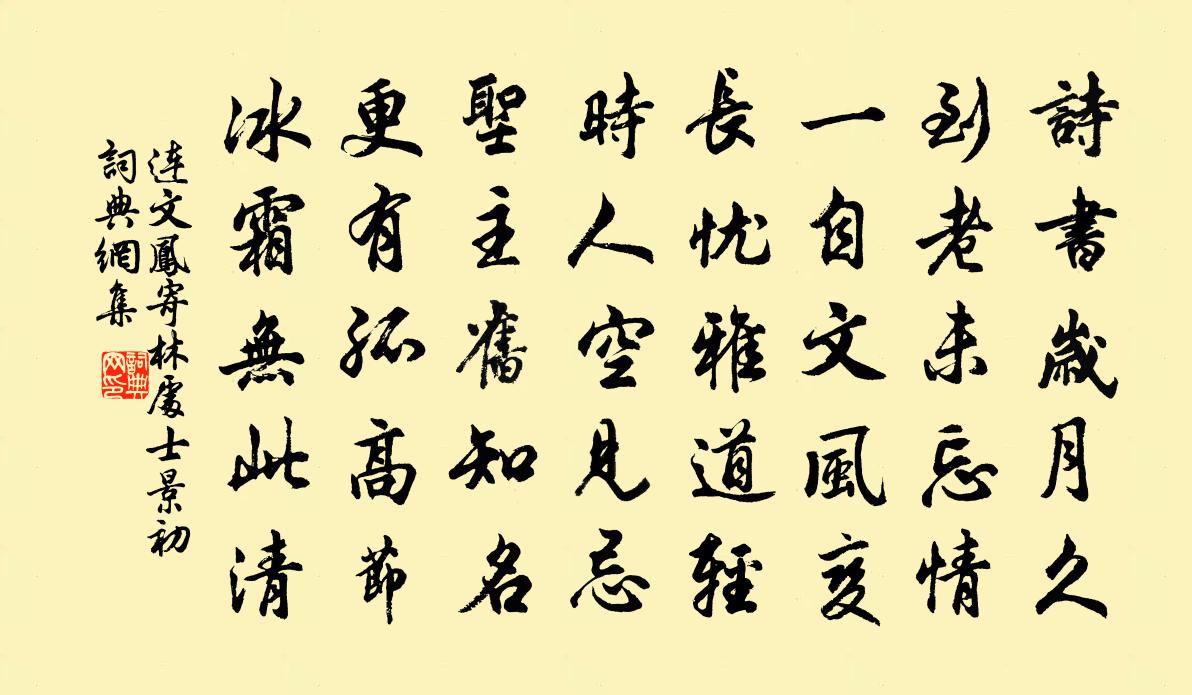 詩書歲月久
到老未忘情
一自文風変
長忧雅道輕
時人空見忌
聖主舊知名
更有孤高節
冰霜無此清
連文鳳寄林處士景初
詞典網集
詞典网印